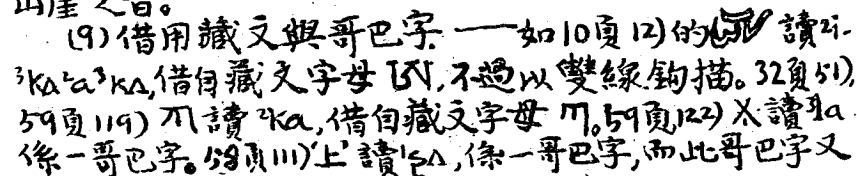 (9)借用藏文與哥巴字——如10頁12)的 讀zi-
³kʌ²a³kʌ,借自藏文字母 ,不過以雙線鈎描。32頁51),
59頁119) 讀²ka,借自藏文字母 ། 59頁122) 讀 a
係一哥巴字。58頁111)‘上’讀¹ʂʌ,係一哥巴字,而此哥巴字又